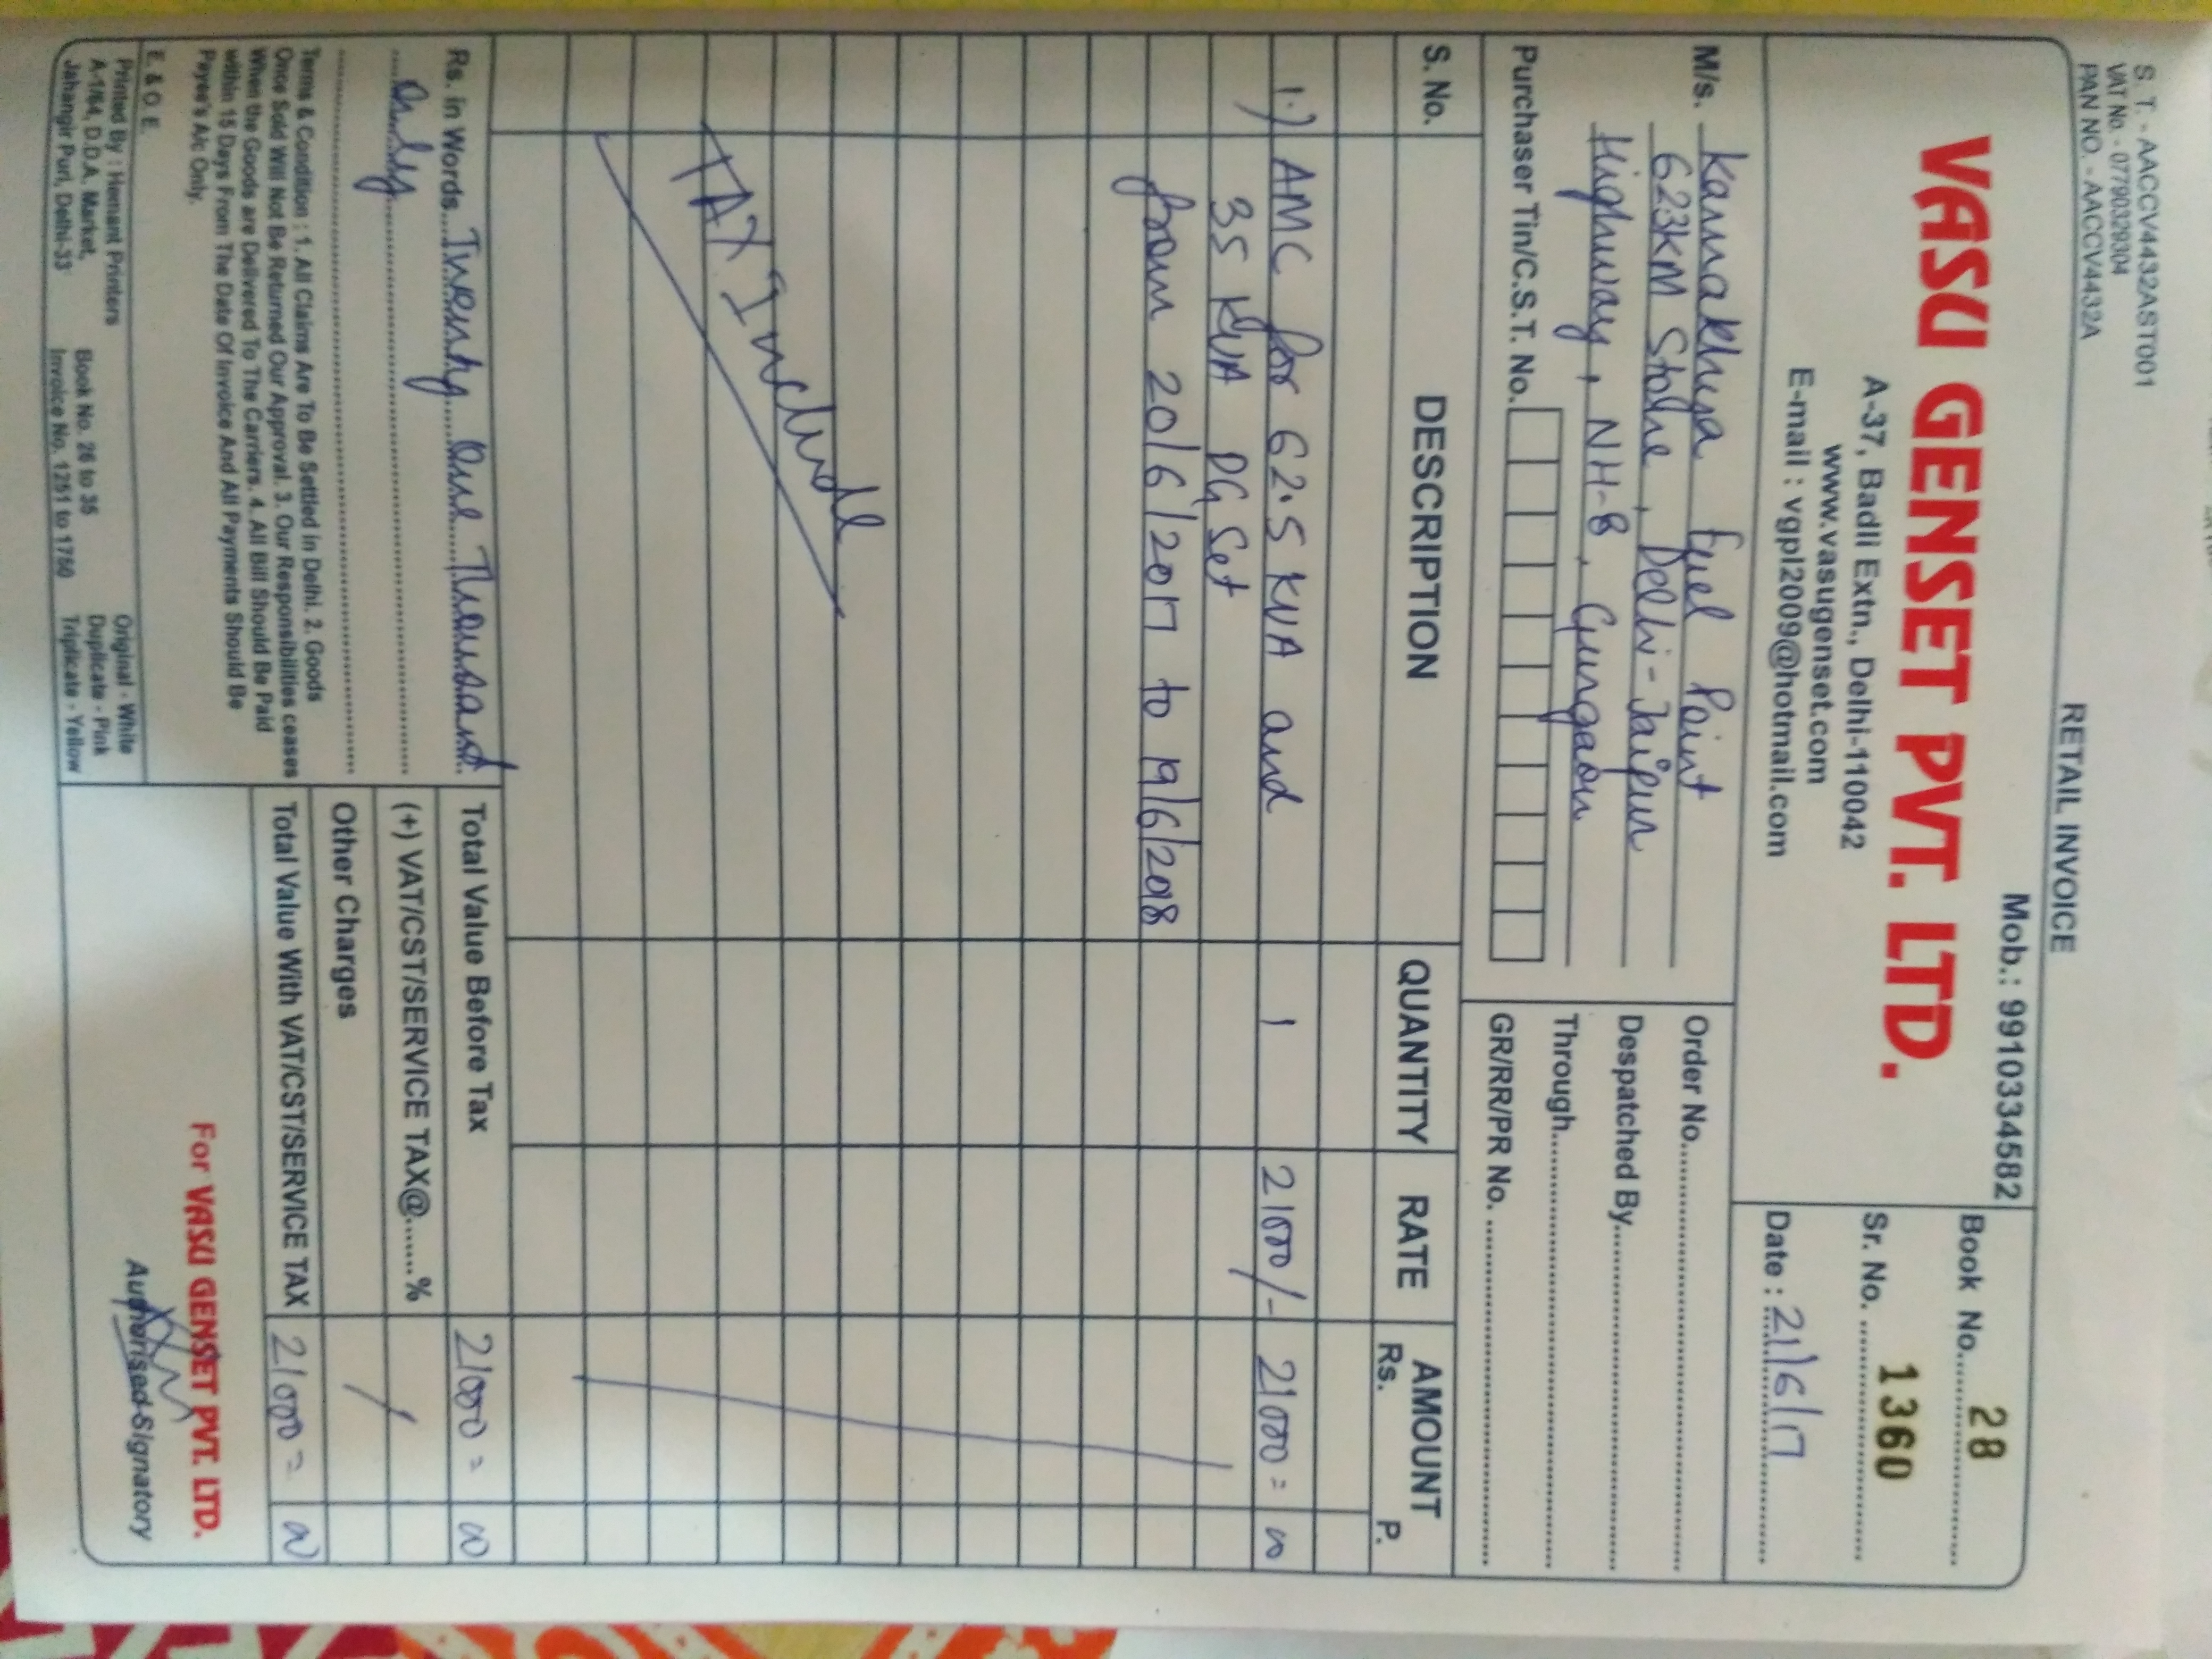 S. T. - AACCV4432AST001
VAT No. - 07790329304
PAN NO. - AACCV4432A
RETAIL INVOICE
Mob.: 9910334582
VASU GENSET PVT. LTD.
A-37, Badli Extn., Delhi-110042
www.vasugenset.com
E-mail : vgpl2009@hotmail.com
Book No. 28
Sr. No. 1360
Date : 21/6/17
M/s. Karnakhya Fuel Point
623KM Stone, Delhi-Jaipur
Highway, NH-8, Gurgaon
Purchaser Tin/C.S.T. No.
Order No.
Despatched By
Through
GR/RR/PR No.
S. No. DESCRIPTION QUANTITY RATE AMOUNT
Rs. P.
1.) AMC for 62.5 KVA and 1 21000/- 21000=00
35 KVA DG Set
from 20/6/2017 to 19/6/2018
TAX Include
Rs. in Words Twenty One Thousand
only
Total Value Before Tax 21000=00
(+) VAT/CST/SERVICE TAX@.......%
Other Charges
Total Value With VAT/CST/SERVICE TAX 21000=00
Terms & Condition : 1. All Claims Are To Be Settled in Delhi. 2. Goods
Once Sold Will Not Be Returned Our Approval. 3. Our Responsibilities ceases
When the Goods are Delivered To The Carriers. 4. All Bill Should Be Paid
within 15 Days From The Date Of Invoice And All Payments Should Be
Payee's A/c Only.
E. & O. E.
For VASU GENSET PVT. LTD.
Authorised Signatory
Printed By : Hemant Printers
A-1/64, D.D.A. Market,
Jahangir Puri, Delhi-33
Book No. 26 to 35
Invoice No. 1251 to 1750
Original - White
Duplicate - Pink
Triplicate - Yellow